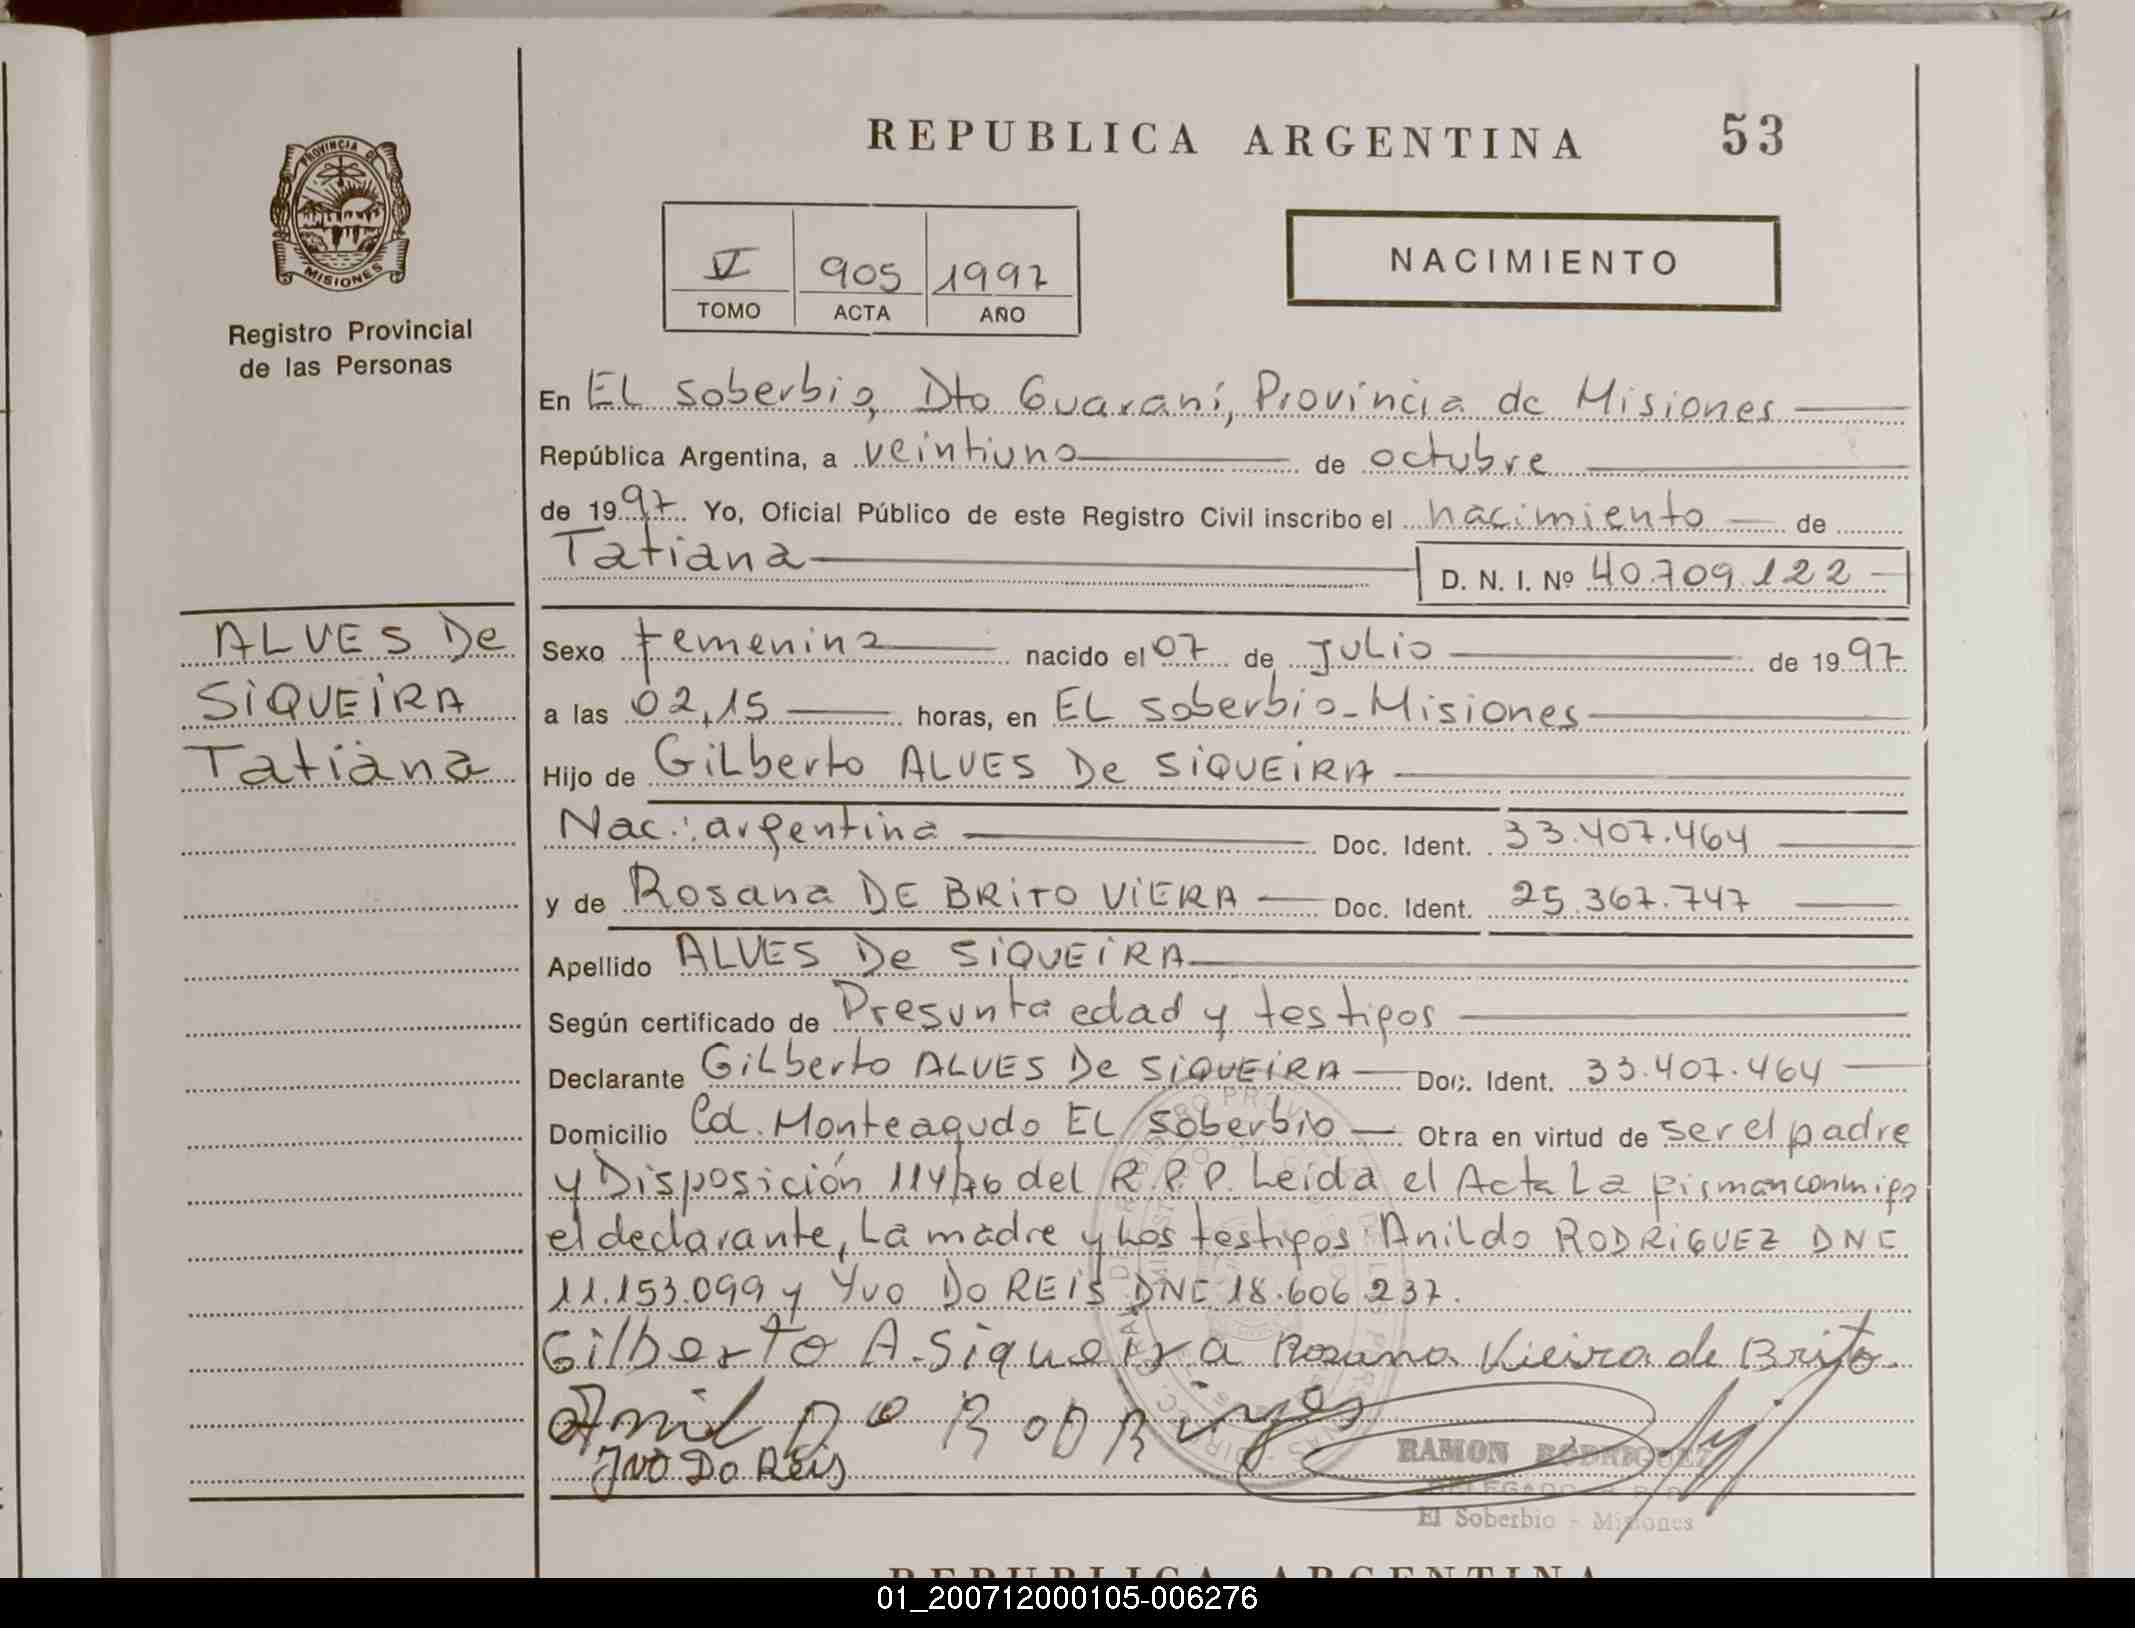 REPUBLICA ARGENTINA 53
PROVINCIA DE
MISIONES
Registro Provincial
de las Personas
V 905 1997
TOMO ACTA AÑO
NACIMIENTO
En EL Soberbio, Dto Guaraní, Provincia de Misiones
República Argentina, a veintiuno de octubre
de 1997 Yo, Oficial Público de este Registro Civil inscribo el nacimiento de
Tatiana D. N. I. Nº 40.709.122
ALVES De
SIQUEIRA
Tatiana
Sexo femenina nacido el 07 de Julio de 1997
a las 02,15 horas, en EL Soberbio - Misiones
Hijo de Gilberto ALVES De SIQUEIRA
Nac.: argentina Doc. Ident. 33.407.464
y de Rosana DE BRITO VIERA Doc. Ident. 25.367.747
Apellido ALVES De SIQUEIRA
Según certificado de Presunta edad y testigos
Declarante Gilberto ALVES De SIQUEIRA Doc. Ident. 33.407.464
Domicilio Cd. Monteagudo EL Soberbio Obra en virtud de ser el padre
y Disposición 114/76 del R.P.P. Leida el Acta La firman conmigo
el declarante, La madre y Los testigos Anildo RODRIGUEZ DNI
11.153.099 y Yvo Do REIS DNI 18.606.237.
Gilberto A. Siqueira Rosana Vieira de Brito
Anildo RODRiges
Jvo Do Reis
RAMON RODRIGUEZ
DELEGADO R. P. P.
El Soberbio - Misiones
REPUBLICA ARGENTINA
01_200712000105-006276